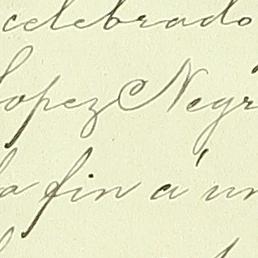 celebrado
Lopez Negr
a fin á un